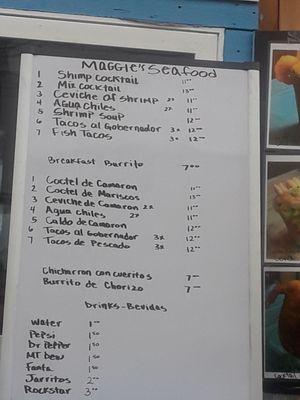 Maggie's Seafood
1 Shimp cocktail 11.00
2 Mix cocktail 13.00
3 Ceviche of shrimp 2x 11.00
4 Agua chiles 2x 11.00
5 Shrimp soup 12.00
6 Tacos al Gobernador 3x 12.00
7 Fish Tacos 3x 12.00
Breakfast Burrito 7.00
1 Coctel de Camaron 11.00
2 Coctel de Mariscos 13.00
3 Ceviche de Camaron 2x 11.00
4 Agua chiles 2x 11.00
5 Caldo de Camaron 12.00
6 Tacos al Gobernador 3x 12.00
7 Tacos de Pescado 3x 12.00
Chicharron con cueritos 7-
Burrito de Chorizo 7-
Drinks-Bevidas
Water 1.00
Pepsi 1.50
Dr Pepper 1.50
MT Dew 1.50
Fanta 1.50
Jarritos 2.00
Rockstar 3.00